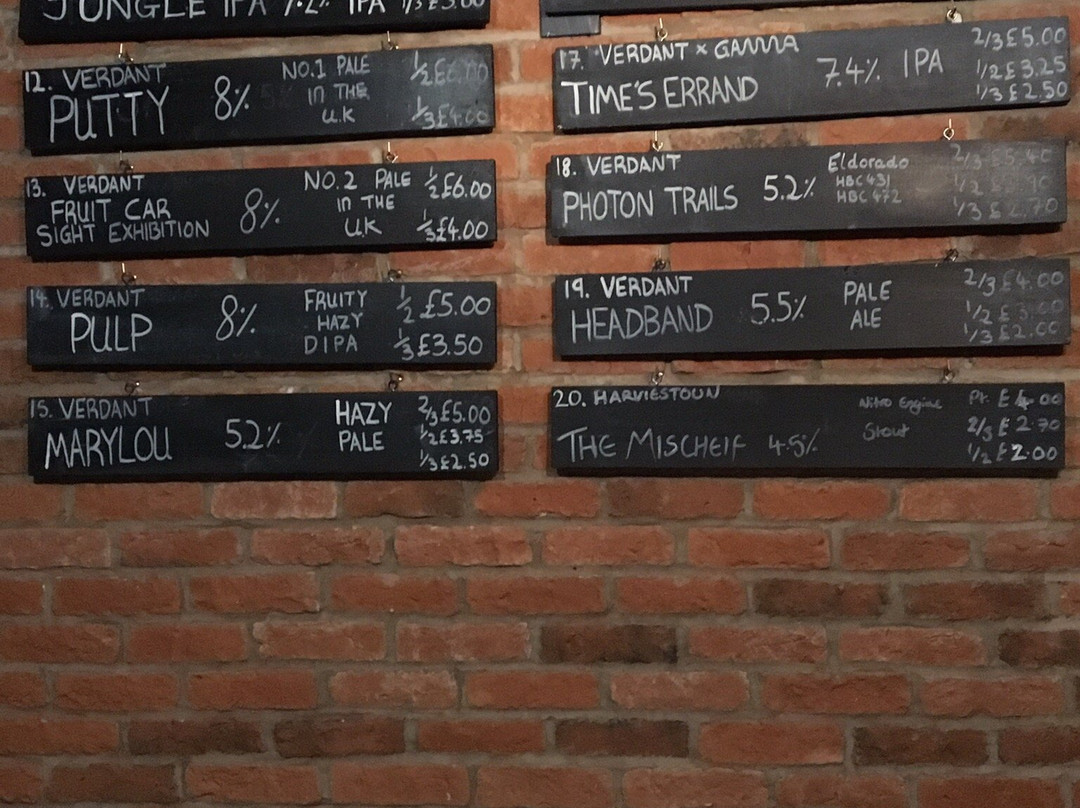 JUNGLE IPA 7.2% IPA 1/3 £3.00
12. VERDANT
PUTTY
8%
NO.1 PALE
IN THE
U.K
1/2
1/3 £4.00
13. VERDANT
FRUIT CAR
SIGHT EXHIBITION
8%
NO.2 PALE
IN THE
U.K
1/2 £6.00
1/3 £4.00
14. VERDANT
PULP
8%
FRUITY
HAZY
DIPA
1/2 £5.00
1/3 £3.50
15. VERDANT
MARYLOU
5.2%
HAZY
PALE
2/3 £5.00
1/2 £3.75
1/3 £2.50
17. VERDANT x GAMMA
TIME'S ERRAND
7.4% IPA
2/3 £5.00
1/2 £3.25
1/3 £2.50
18. VERDANT
PHOTON TRAILS
5.2%
Eldorado
HBC 431
HBC 472
2/3 £5.40
1/2
1/3 £2.70
19. VERDANT
HEADBAND
5.5%
PALE
ALE
2/3 £4.00
1/2 £3.00
1/3 £2.00
20. HARVIESTOUN
THE MISCHEIF 4.5%
Nitro Engine
Stout
Pt. £4.00
2/3 £2.70
1/2 £2.00